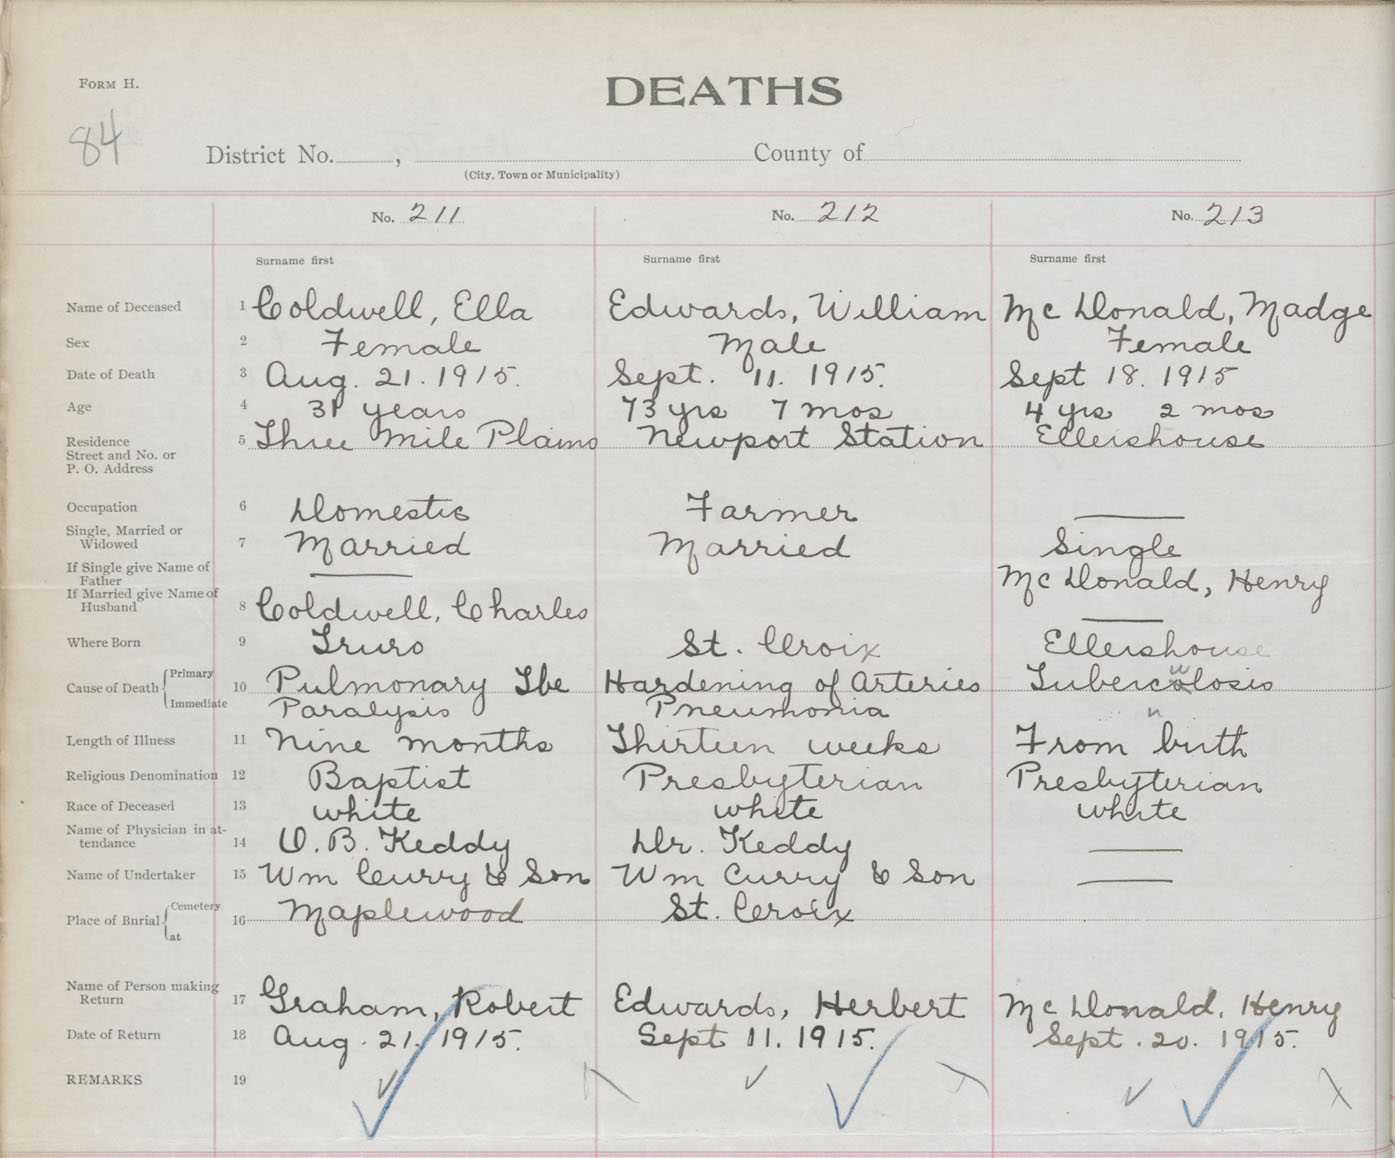 FORM H.
DEATHS
84
District No. , County of
(City, Town or Municipality)
No. 211 No. 212 No. 213
Surname first Surname first Surname first
Name of Deceased 1 Coldwell, Ella Edwards, William McDonald, Madge
Sex 2 Female Male Female
Date of Death 3 Aug. 21. 1915. Sept. 11. 1915. Sept 18. 1915
Age 4 31 years 73 yrs 7 mos 4 yrs 2 mos
Residence 5 Three Mile Plains Newport Station Ellershouse
Street and No. or
P. O. Address
Occupation 6 Domestic Farmer
Single, Married or
Widowed 7 Married Married Single
If Single give Name of
Father McDonald, Henry
If Married give Name of
Husband 8 Coldwell, Charles
Where Born 9 Truro St. Croix Ellershouse
Cause of Death { Primary 10 Pulmonary Tbe Hardening of Arteries Tuberculosis
Immediate Paralysis Pneumonia
Length of Illness 11 Nine months Thirteen weeks From birth
Religious Denomination 12 Baptist Presbyterian Presbyterian
Race of Deceased 13 white white white
Name of Physician in at-
tendance 14 O. B. Keddy Dr. Keddy
Name of Undertaker 15 Wm Curry & Son Wm Curry & Son
Place of Burial { Cemetery 16 Maplewood St. Croix
at
Name of Person making
Return 17 Graham, Robert Edwards, Herbert McDonald, Henry
Date of Return 18 Aug. 21. 1915. Sept 11. 1915. Sept. 20. 1915.
REMARKS 19